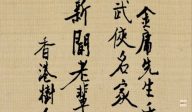 金庸先生千
武俠名家
新聞老輩
香港樹仁